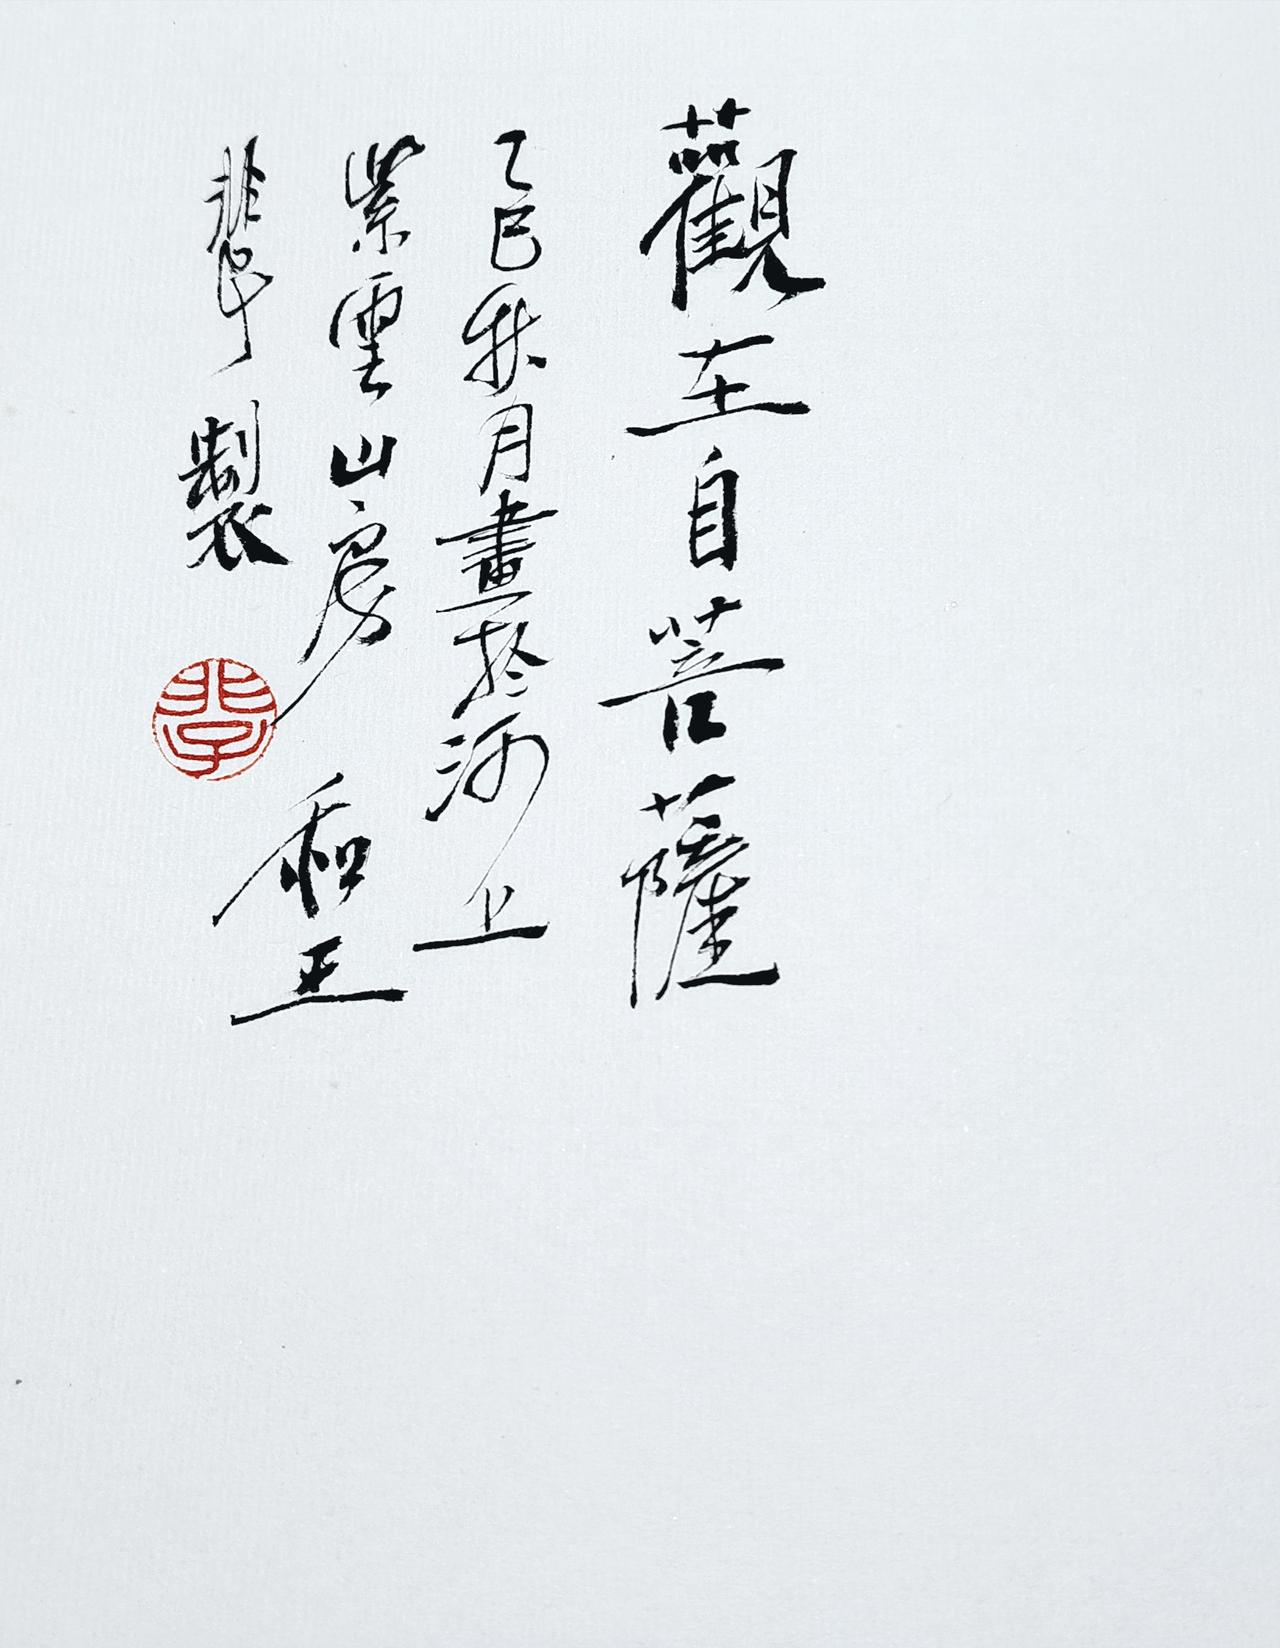 觀在自菩薩
乙巳秋月畫於河上
紫雲山房 和王
製